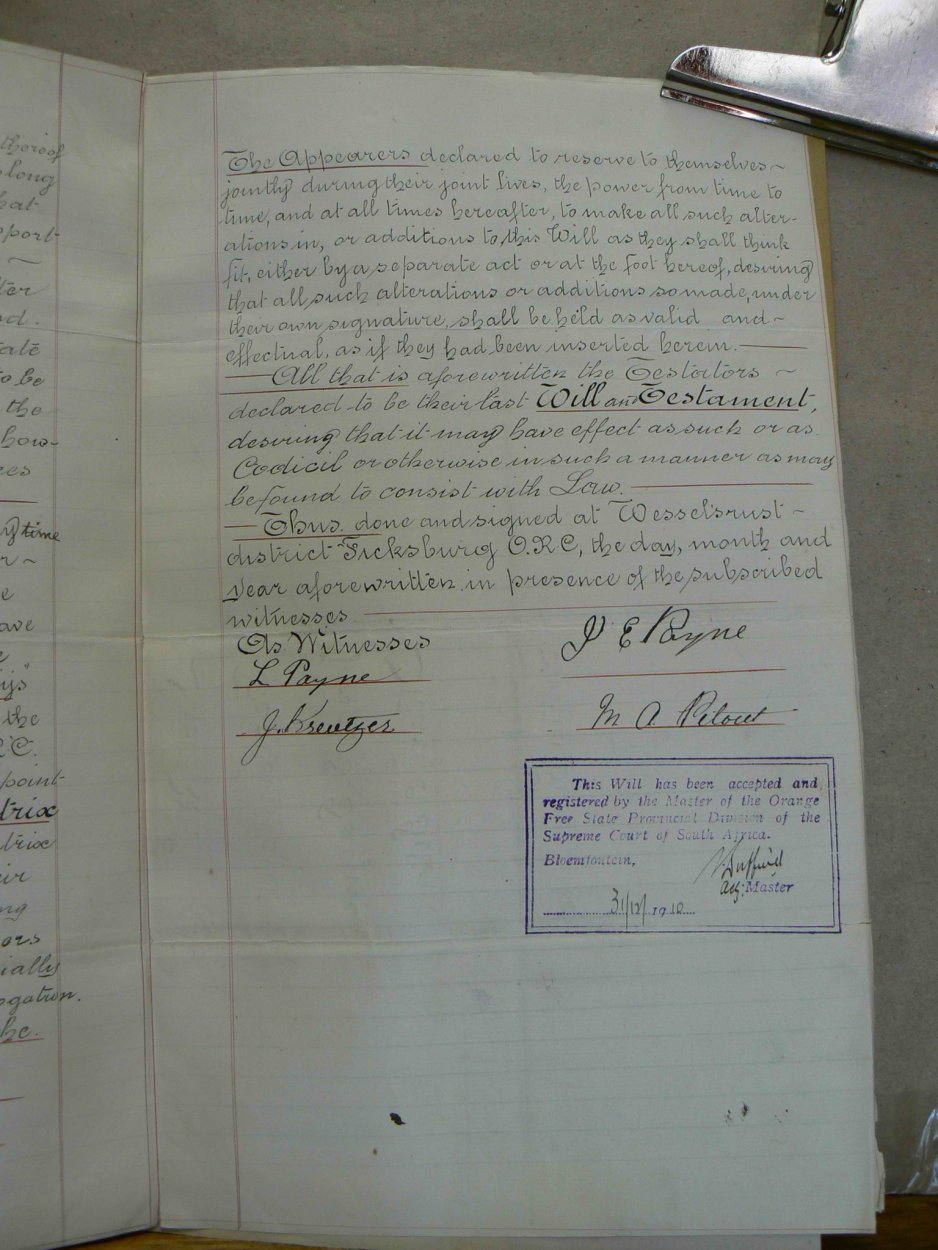 thereof
long
hat
pport-
ter
nd.
tate
to be
the
how-
ces
time
r ~
e
ave
ijs"
the
R.C.
point-
trix
trix
eir
ng
ors
ially
ogation.
hc.
The Appearers declared to reserve to themselves ~
jointly during their joint lives, the power from time to
time, and at all times hereafter, to make all such alter-
ations in, or additions to this Will as they shall think
fit, either by a separate act or at the foot hereof, desiring
that all such alterations or additions so made, under
their own signature, shall be held as valid and ~
effectual, as if they had been inserted herein.
All that is aforewritten the Testators ~
declared to be their last Will and Testament,
desiring that it may have effect as such or as
Codicil or otherwise in such a manner as may
be found to consist with Law.
Thus done and signed at Wesselsrust ~
district Ficksburg O.R.C, the day, month and
year aforewritten in presence of the subscribed
witnesses
As Witnesses
J E Payne
L Payne
M A Pelout
J. Kreutzer
This Will has been accepted and
registered by the Master of the Orange
Free State Provincial Division of the
Supreme Court of South Africa.
Bloemfontein,
actg. Master
31/12/1910